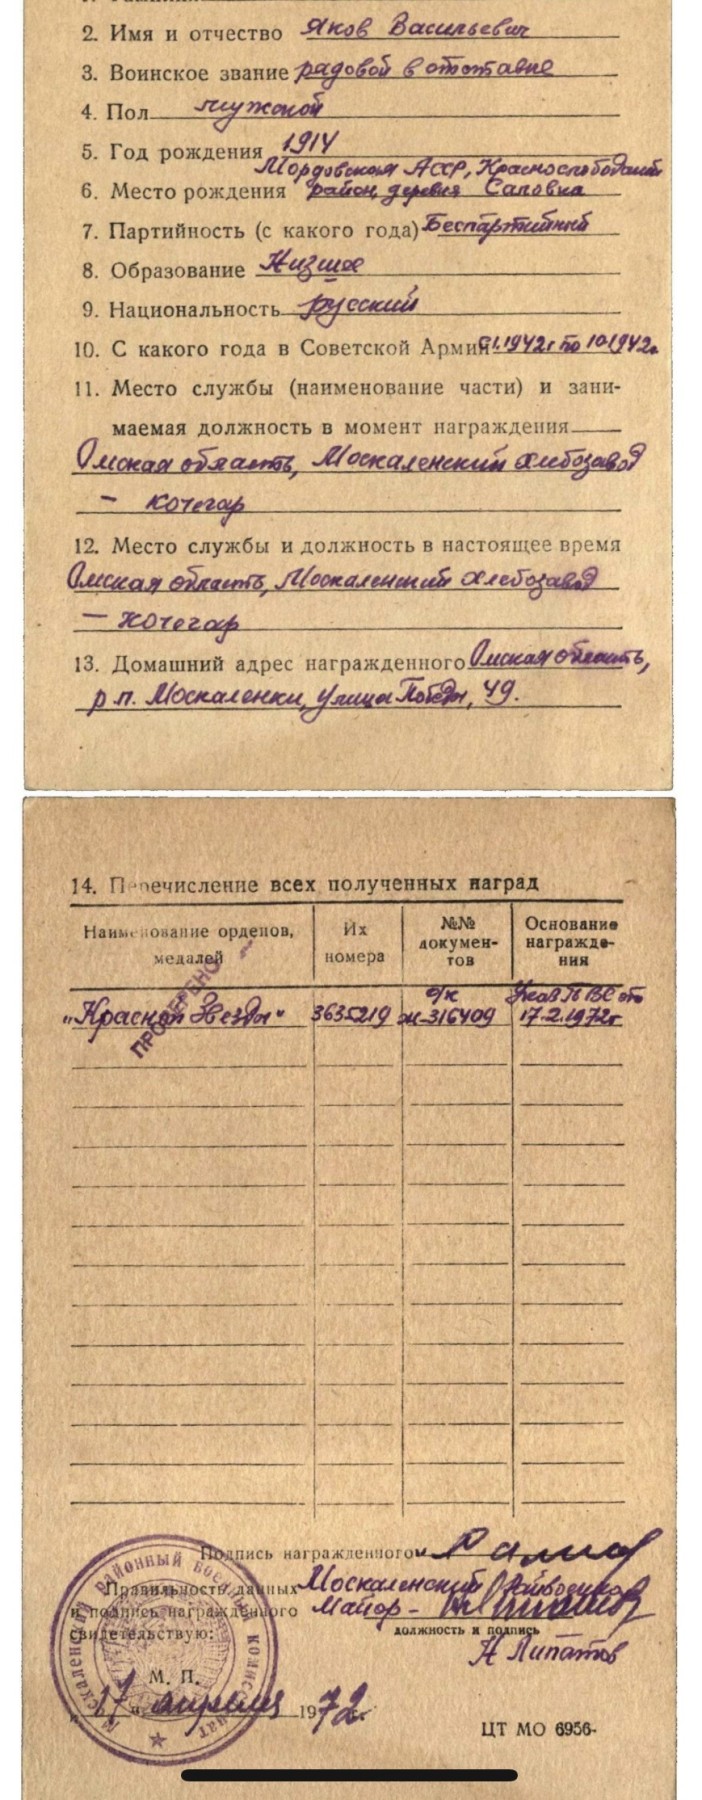 2. Имя и отчество Яков Васильевич
3. Воинское звание рядовой в отставке
4. Пол мужской
5. Год рождения 1914
Мордовская АССР, Краснослободский
6. Место рождения район, деревня
7. Партийность (с какого года) Беспартийный
8. Образование Низшее
9. Национальность русский
10. С какого года в Советской Армии 1.1942г по 10.1942г
11. Место службы (наименование части) и зани-
маемая должность в момент награждения
Омская область, Москаленский хлебозавод
– кочегар
12. Место службы и должность в настоящее время
Омская область, Москаленский хлебозавод
– кочегар
13. Домашний адрес награжденного Омская область,
р.п. Москаленки, улица Победы, 49.
14. Перечисление всех полученных наград
Наименование орденов, медалей
Их номера
№№ докумен-
тов
Основание
награжде-
ния
ПРОВЕРЕНО
„Красной Звезды" 3635219 о/к м-316409 Указ П ВС от 17.2.1972г
Подпись награжденного
Правильность данных Москаленский Райвоенком
и подпись награжденного Майор -
должность и подпись
свидетельствую:
Н Липатов
Москаленский районный военный комиссариат
М. П.
„17" апреля 1972 г.
ЦТ МО 6956-